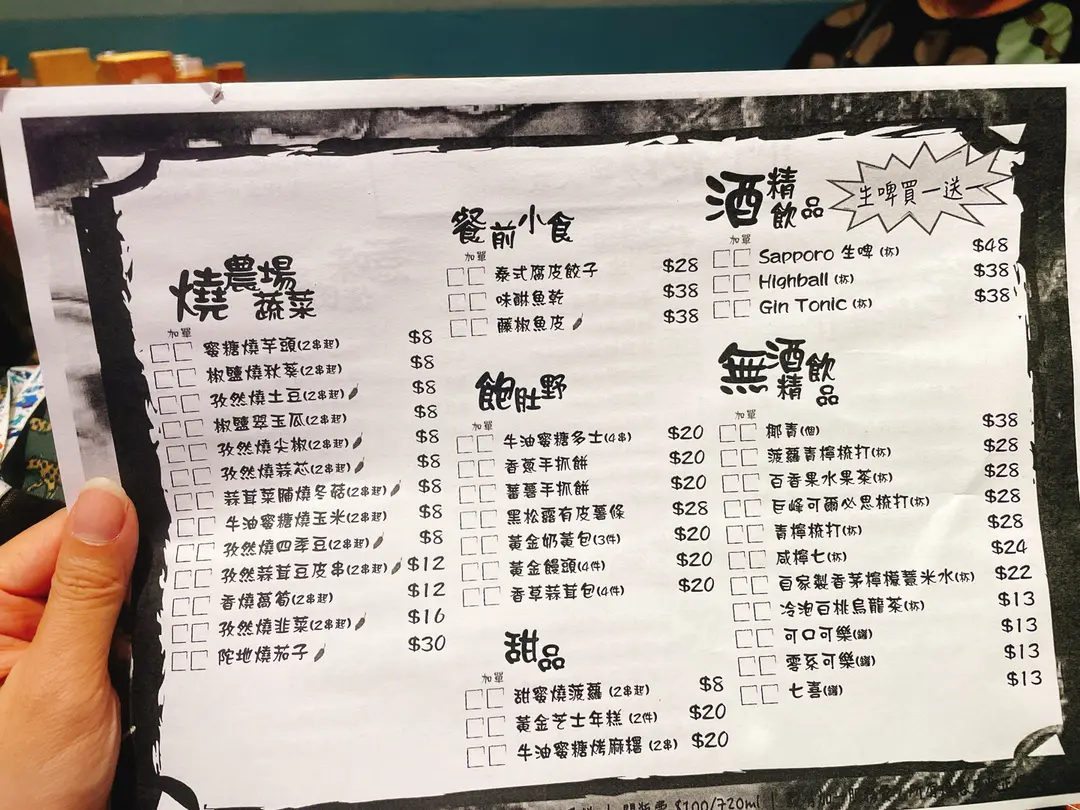 燒農場蔬菜
加單
蜜糖燒芋頭(2串起) $8
椒鹽燒秋葵(2串起) $8
孜然燒土豆(2串起) $8
椒鹽翠玉瓜(2串起) $8
孜然燒尖椒(2串起) $8
孜然燒蒜芯(2串起) $8
蒜茸菜脯燒冬菇(2串起) $8
牛油蜜糖燒玉米(2串起) $8
孜然燒四季豆(2串起) $8
孜然蒜茸豆皮串(2串起) $12
香燒萵筍(2串起) $12
孜然燒韭菜(2串起) $16
陀地燒茄子 $30
餐前小食
加單
泰式腐皮餃子 $28
味醂魚乾 $38
藤椒魚皮 $38
飽肚野
加單
牛油蜜糖多士(4串) $20
香蔥手抓餅 $20
蕃薯手抓餅 $20
黑松露有皮薯條 $28
黃金奶黃包(3件) $20
黃金饅頭(4件) $20
香草蒜茸包(4件) $20
甜品
加單
甜蜜燒菠蘿(2串起) $8
黃金芝士年糕(2件) $20
牛油蜜糖烤麻糬(2串) $20
酒精飲品
生啤買一送一
加單
Sapporo 生啤(杯) $48
Highball (杯) $38
Gin Tonic (杯) $38
無酒精飲品
加單
椰青(個) $38
菠蘿青檸梳打(杯) $28
百香果水果茶(杯) $28
巨峰可爾必思梳打(杯) $28
青檸梳打(杯) $28
咸檸七(杯) $24
自家製香茅檸檬薏米水(杯) $22
冷泡白桃烏龍茶(杯) $13
可口可樂(罐) $13
零系可樂(罐) $13
七喜(罐) $13
開瓶費 $100/720ml